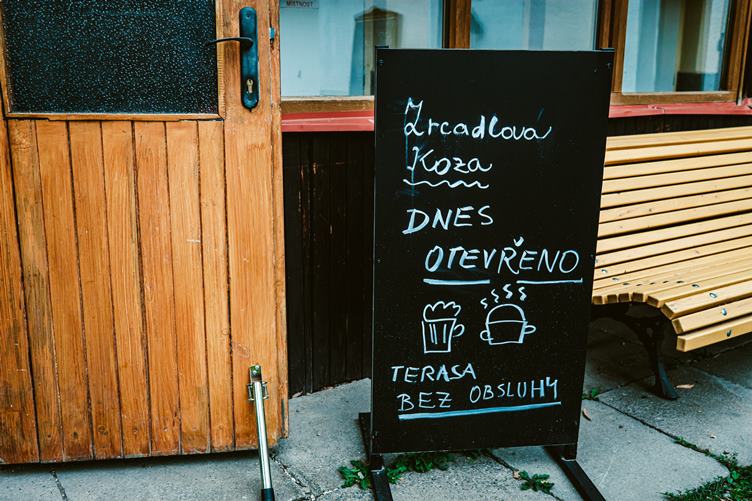 MÍSTNOST
Zrcadlová
Koza
DNES
OTEVŘENO
TERASA
BEZ OBSLUHY